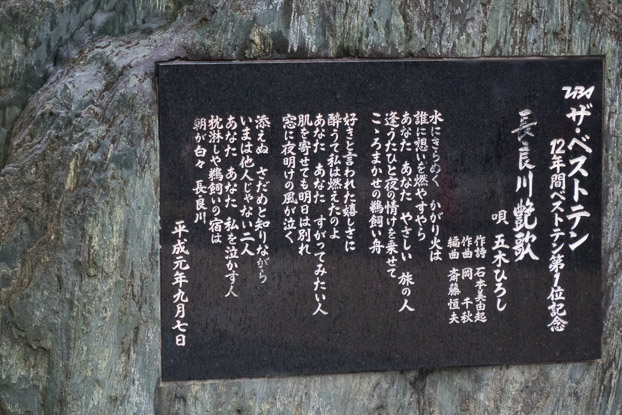 TBS
ザ・ベストテン
12年間ベストテン第1位記念
長良川艶歌
唄 五木ひろし
作詩 石本美由起
作曲 岡 千秋
編曲 斎藤恒夫
水にきらめく かがり火は
誰に想いを燃やすやら
あなた あなた やさしい 旅の人
逢うたひと夜の情けを乗せて
こころまかせの鵜飼い舟
好きと言われた嬉しさに
酔うて私は燃えたのよ
あなた あなた すがってみたい人
肌を寄せても明日は別れ
窓に夜明けの風が泣く
添えぬ さだめと知りながら
いまは他人じゃない二人
あなた あなた 私を泣かす人
枕淋しや鵜飼いの宿は
朝が白々 長良川
平成元年九月七日